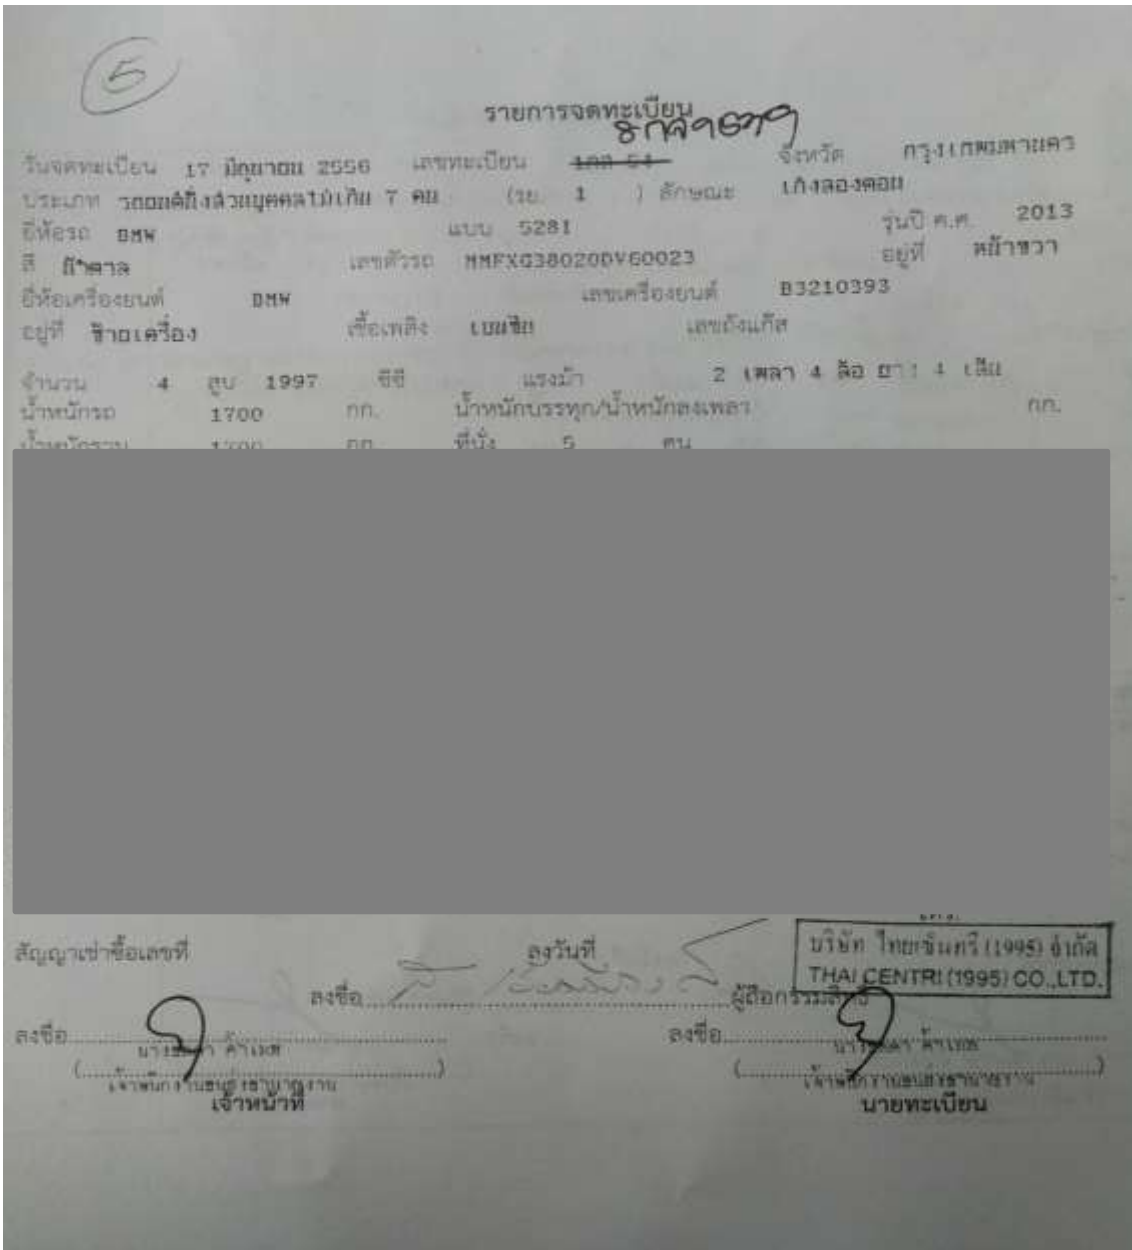 5
รายการจดทะเบียน
วันจดทะเบียน 17 มิถุนายน 2556 เลขทะเบียน จังหวัด กรุงเทพมหานคร
ประเภท รถยนต์นั่งส่วนบุคคลไม่เกิน 7 คน (รย. 1 ) ลักษณะ เก๋งสองตอน
ยี่ห้อรถ BMW แบบ 528I รุ่นปี ค.ศ. 2013
สี น้ำตาล เลขตัวรถ MMFXG38020DV60023 อยู่ที่ หน้าขวา
ยี่ห้อเครื่องยนต์ BMW เลขเครื่องยนต์ B3210393
อยู่ที่ ซ้ายเครื่อง เชื้อเพลิง เบนซิน เลขถังแก๊ส
จำนวน 4 สูบ 1997 ซีซี แรงม้า 2 เพลา 4 ล้อ ยาง 4 เส้น
น้ำหนักรถ 1700 กก. น้ำหนักบรรทุก/น้ำหนักลงเพลา กก.
น้ำหนักรวม 1700 กก. ที่นั่ง 5 คน
สัญญาเช่าซื้อเลขที่ ลงวันที่
บริษัท ไทยเซ็นทรี (1995) จำกัด
THAI CENTRI (1995) CO.,LTD.
ลงชื่อ ผู้ถือกรรมสิทธิ์
ลงชื่อ ลงชื่อ
เจ้าพนักงานขนส่งชำนาญงาน เจ้าพนักงานขนส่งชำนาญงาน
เจ้าหน้าที่ นายทะเบียน